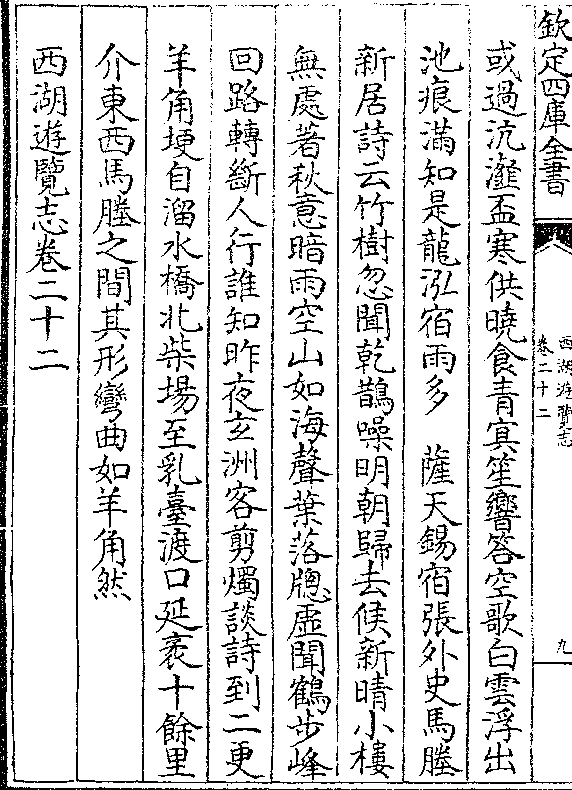 欽定四庫全書
西湖遊覽志
卷二十二
九
或過沆瀣盃寒供曉食青寘笙響答空歌白雲浮出
池痕滿知是龍泓宿雨多　薩天錫宿張外史馬塍
新居詩云竹樹忽聞乾鵲噪明朝歸去候新晴小樓
無處著秋意暗雨空山如海聲葉落牕虛聞鶴步峰
回路轉斷人行誰知昨夜玄洲客剪燭談詩到二更
羊角埂自溜水橋北柴場至乳臺渡口延袤十餘里
介東西馬塍之間其形彎曲如羊角然
西湖遊覽志卷二十二